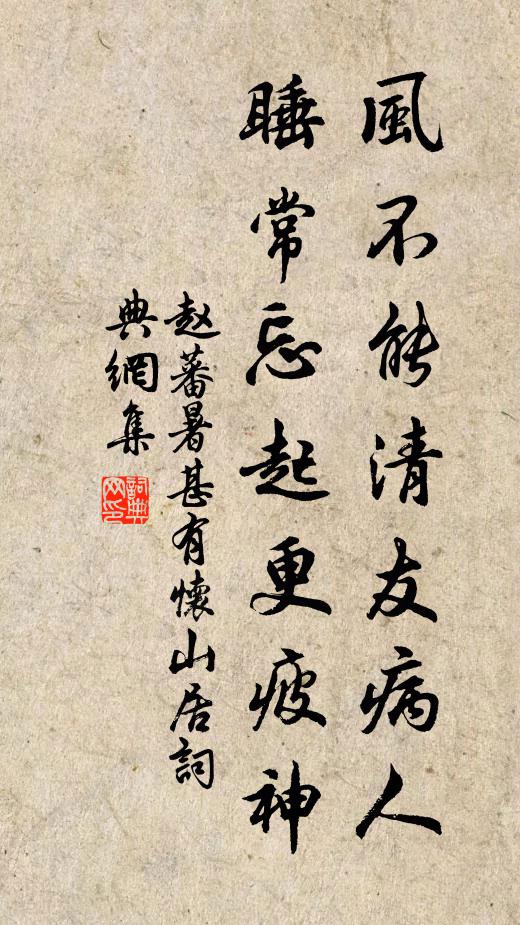 風不能清友病人
睡常忘起更疲神
赵蕃暑甚有懷山居詞
典網集
詞典
网印